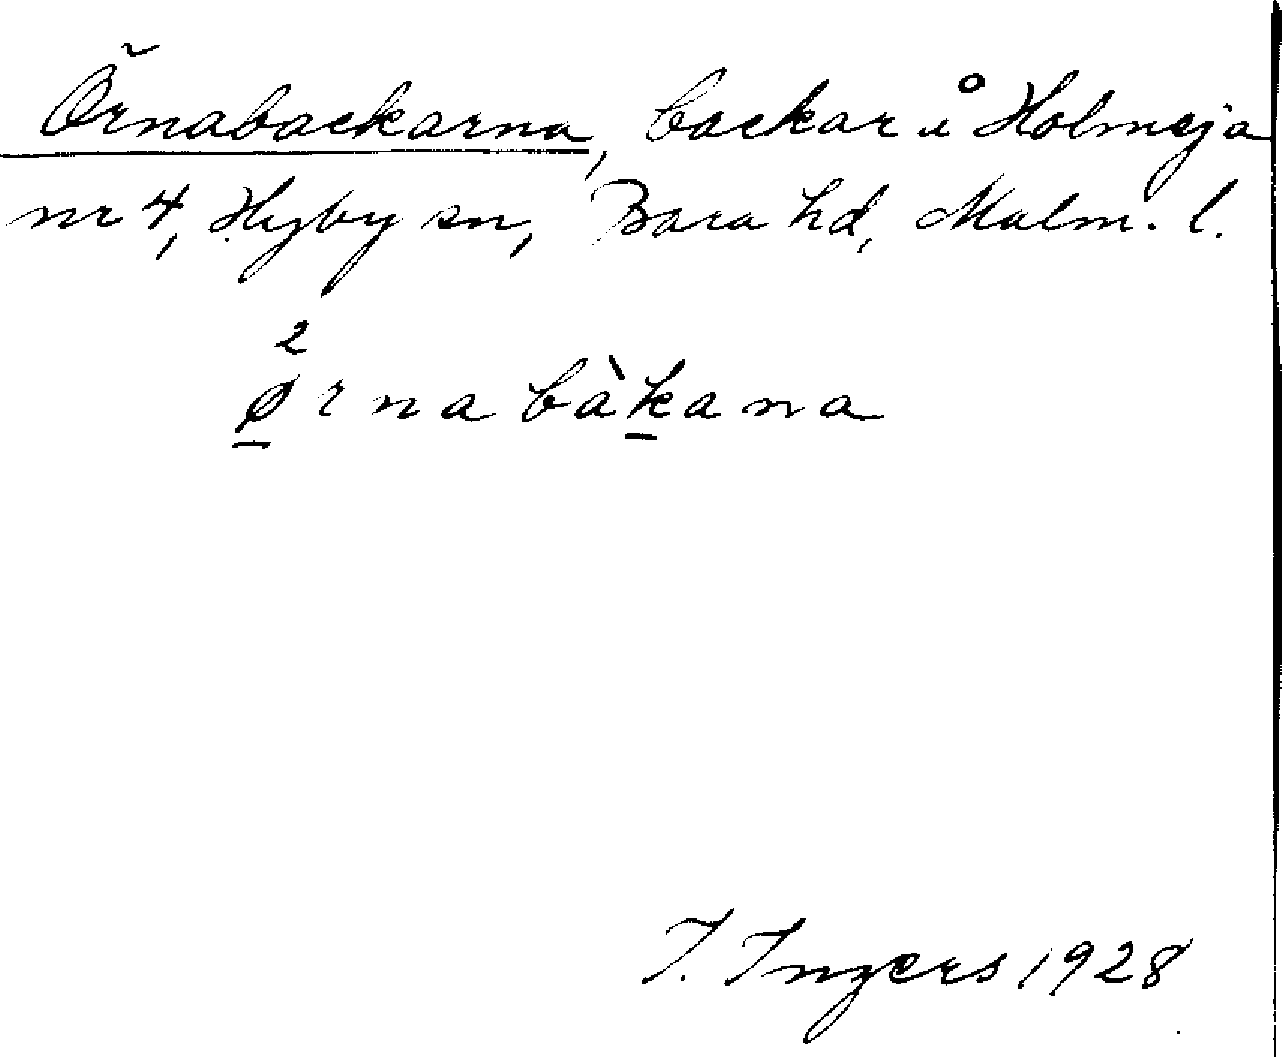 Örnabackarna, backar å Holmeja
nr 4, Hyby sn, Bara hd, Malm. l.
2
ø̲rnabàk̲ana
I. Ingers 1928